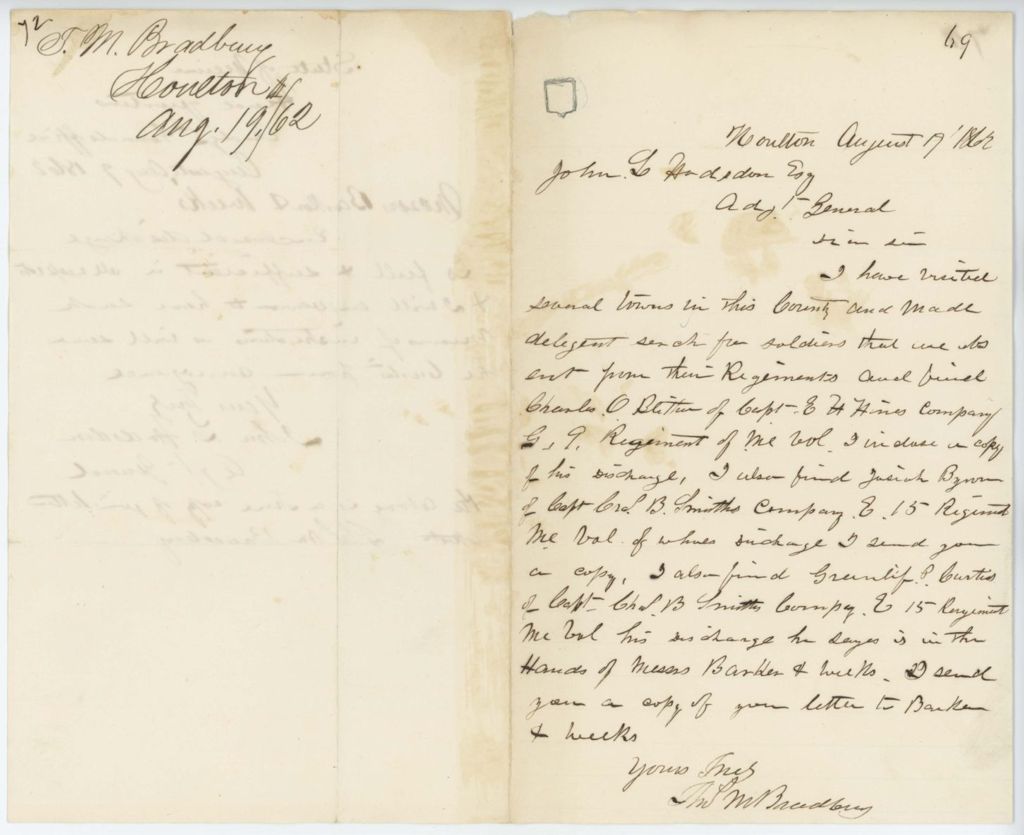 72
T. M. Bradbury
Houlton
Aug. 19, /62
69
Houlton August 19' 1862
John L Hodsdon Esq
Adj't General
Dier sir
I have visited
several towns in this County and made
delegent serch for soldiers that are abs
ent from their Regiments and find
Charles O of Capt E H Hines Company
G, 9, Regiment of Me Vol I inclose a copy
of his discharge, I also find Josiah
of Capt Chs B. Smiths Company E. 15 Regiment
Me Vol. of whoes discharge I send you
a copy, I also find Greenlif P. Curtis
of Capt Chs. B Smiths Compay. E 15 Regiment
Me Vol his discharge he sayes is in the
Hands of Messrs Barker & Weeks. I send
you a copy of your letter to Barker
& Weeks
Yours Truly
Thos M Bradbury